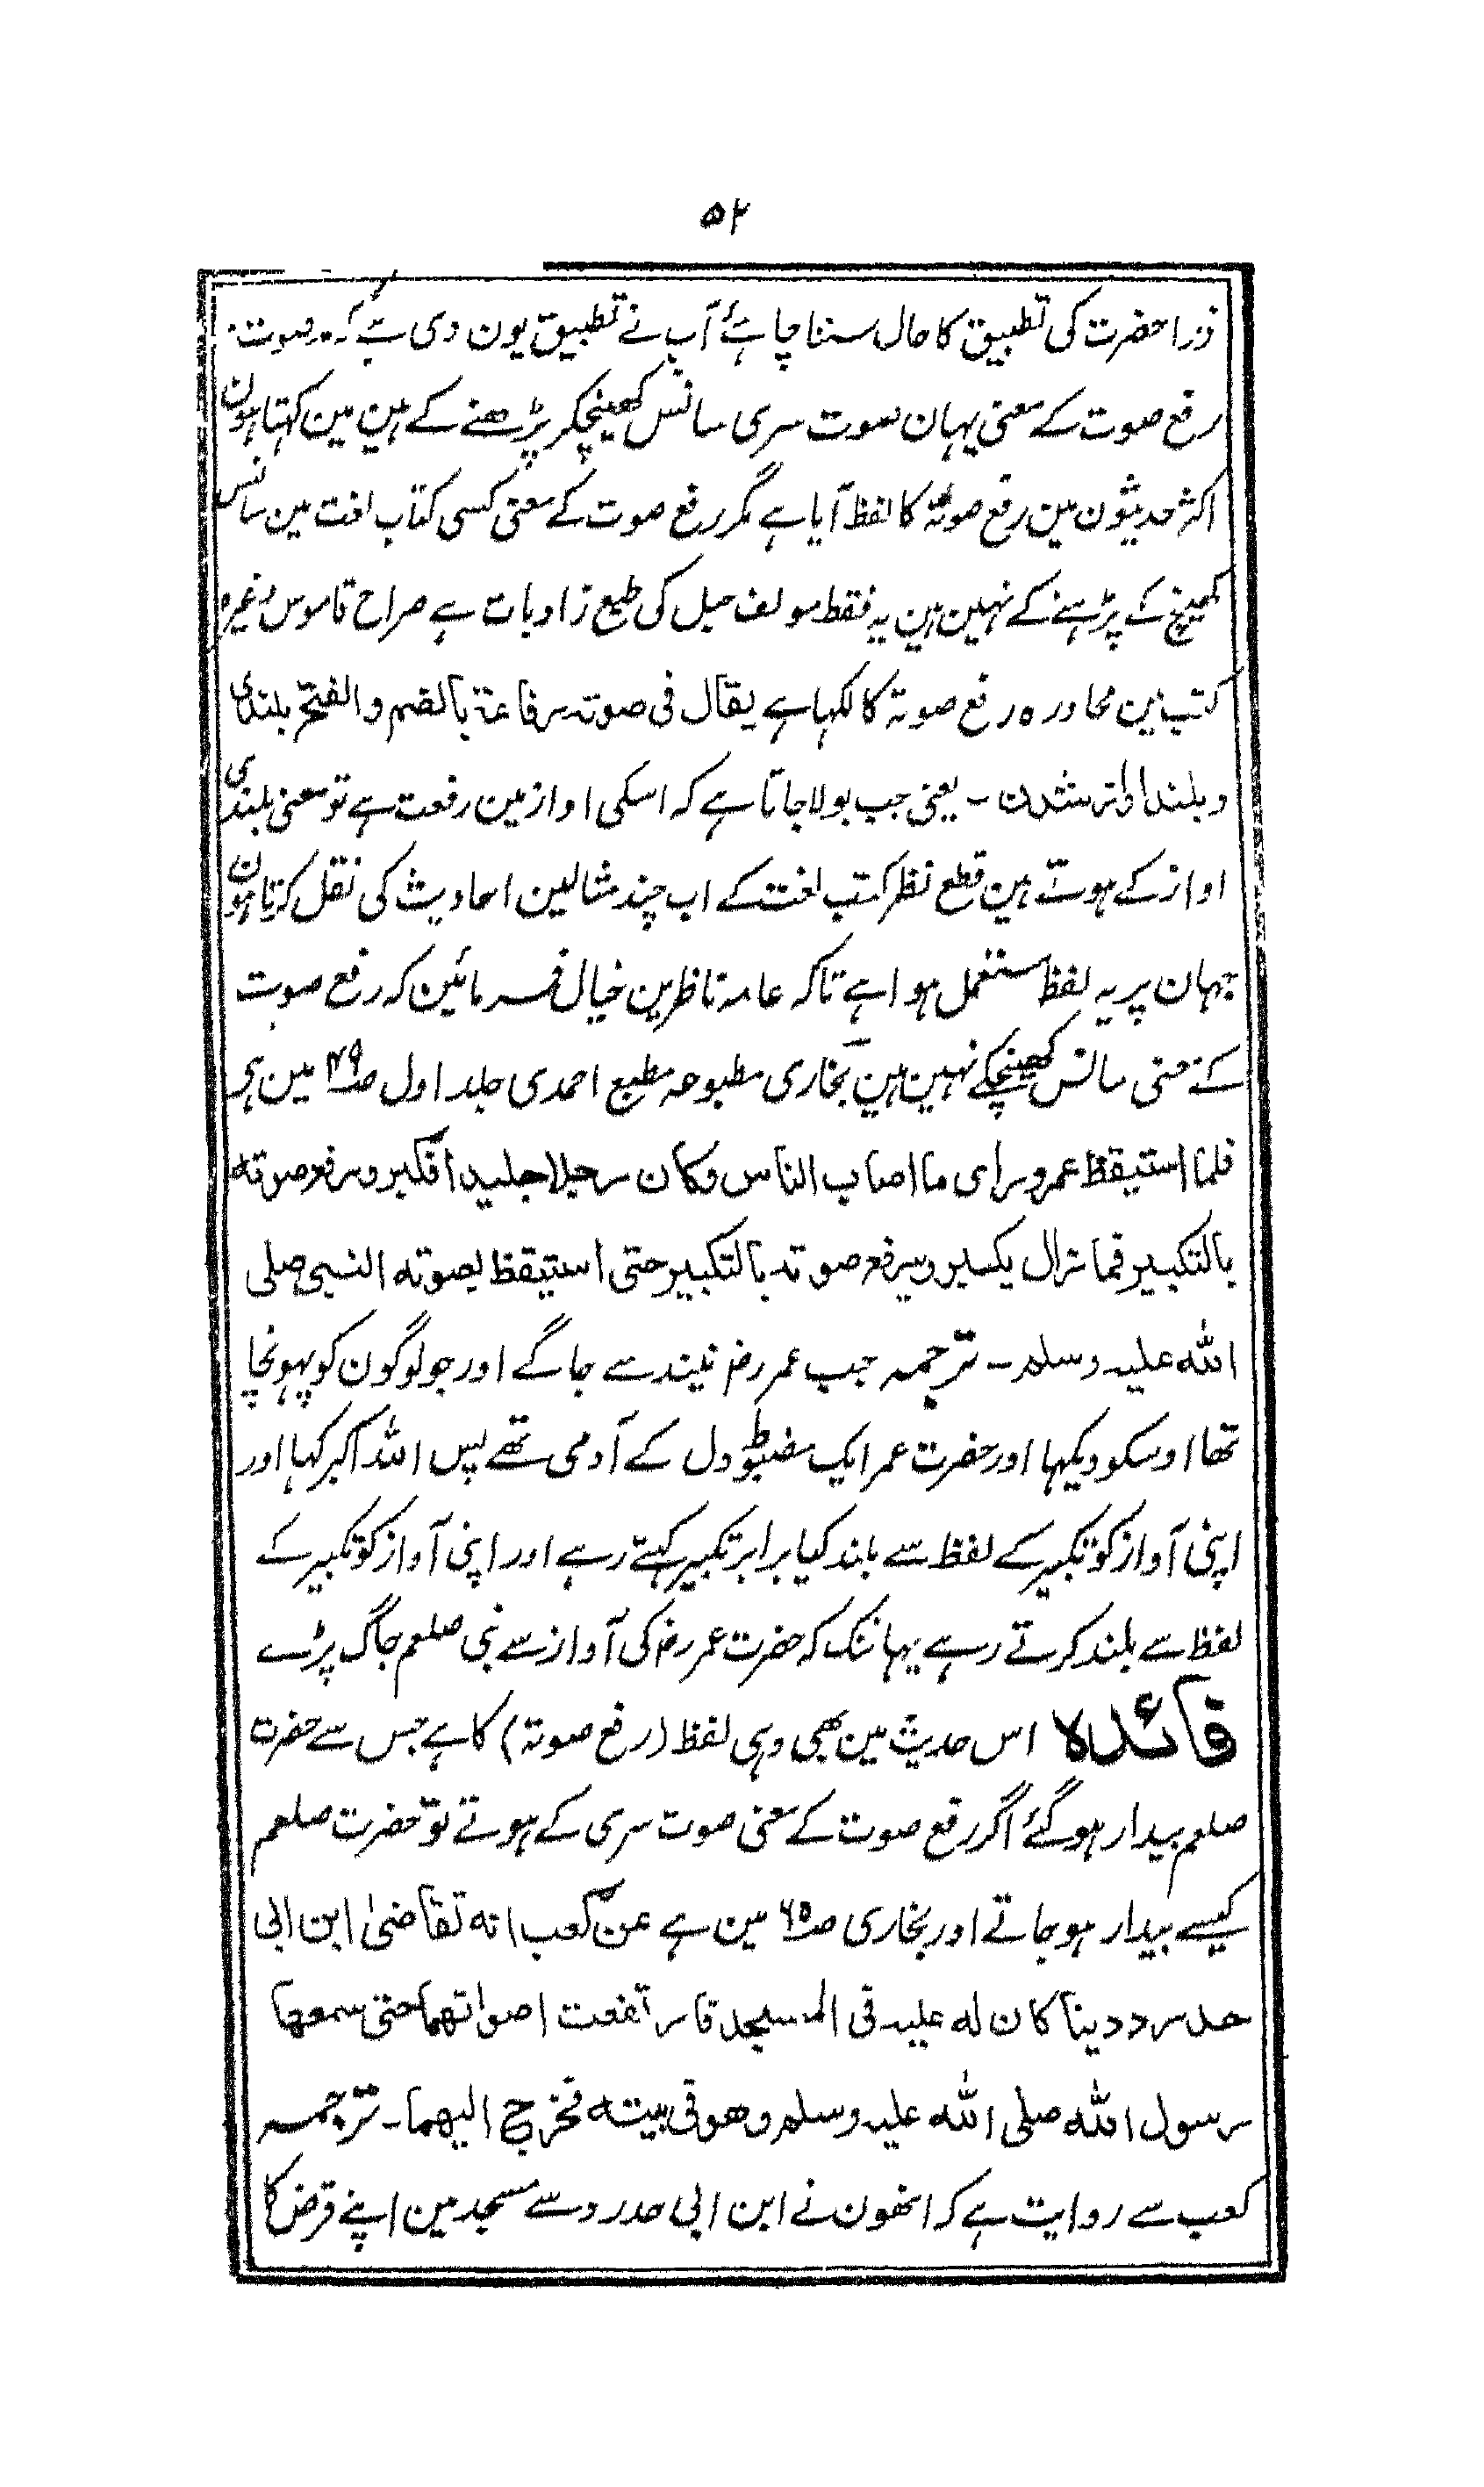 ۵۲
ذرا حضرت کی تطبیق کا حال سننا چاہئے آپ نے تطبیق یون دی ہے کہ صوت
رفع صوت کے معنی یہان صوت سری سانس کھینچکر پڑھنے کے ہین مین کہتا ہون
اکثر حدیثون مین رفع صوتہ کا لفظ آیا ہے مگر رفع صوت کے معنی کسی کتاب لغت مین سانس
کھینچ کے پڑہنے کے نہین ہین یہ فقط مولف کی طبع زاد بات ہے صراح قاموس وغیرہ
کتب مین محاورہ رفع صوتہ کا لکہا ہے یقال فی صوتہ رفاعۃ بالضم والفتح بلندی
و بلند اواز شدن ۔ یعنی جب بولا جاتا ہے کہ اسکی اواز مین رفعت ہے تو معنی بلندی
اواز کے ہوتے ہین قطع نظر کتب لغت کے اب چند مثالین احادیث کی نقل کرتا ہون
جہان پر یہ لفظ مستعمل ہوا ہے تاکہ عامہ ناظرین خیال فرمائین کہ رفع صوت
کے معنی سانس کھینچکے نہین ہین بخاری مطبوعہ مطبع احمدی جلد اول صـ۴۹ مین ہی
فلما استیقظ عمر ورای ما اصاب الناس وکان رجلا جلیدا فکبر ورفع صوتہ
بالتکبیر فما زال یکبر ویرفع صوتہ بالتکبیر حتی استیقظ لصوتہ النبی صلی
اللہ علیہ وسلم ۔ ترجمہ جب عمر رض نیند سے جاگے اور جو لوگون کو پہونچا
تھا اوسکو دیکہا اور حضرت عمر ایک مضبوط دل کے آدمی تھے پس اللہ اکبر کہا اور
اپنی آواز کو تکبیر کے لفظ سے بلند کیا برابر تکبیر کہتے رہے اور اپنی آواز کو تکبیر کے
لفظ سے بلند کرتے رہے یہانتک کہ حضرت عمر رض کی آواز سے نبی صلعم جاگ پڑے
فائدہ اس حدیث مین بھی وہی لفظ (رفع صوتہ) کا ہے جس سے حضرت
صلعم بیدار ہو گئے اگر رفع صوت کے معنی صوت سری کے ہوتے تو حضرت صلعم
کیسے بیدار ہو جاتے اور بخاری صـ۶۵ مین ہے عن کعب انہ تقاضیٰ ابن ابی
حدرد دینا کان لہ علیہ فی المسجد فارتفعت اصواتھما حتی سمعھا
رسول اللہ صلی اللہ علیہ وسلم وھو فی بیتہ فخرج الیھما ۔ ترجمہ
کعب سے روایت ہے کہ انھون نے ابن ابی حدرد سے مسجد مین اپنے قرض کا